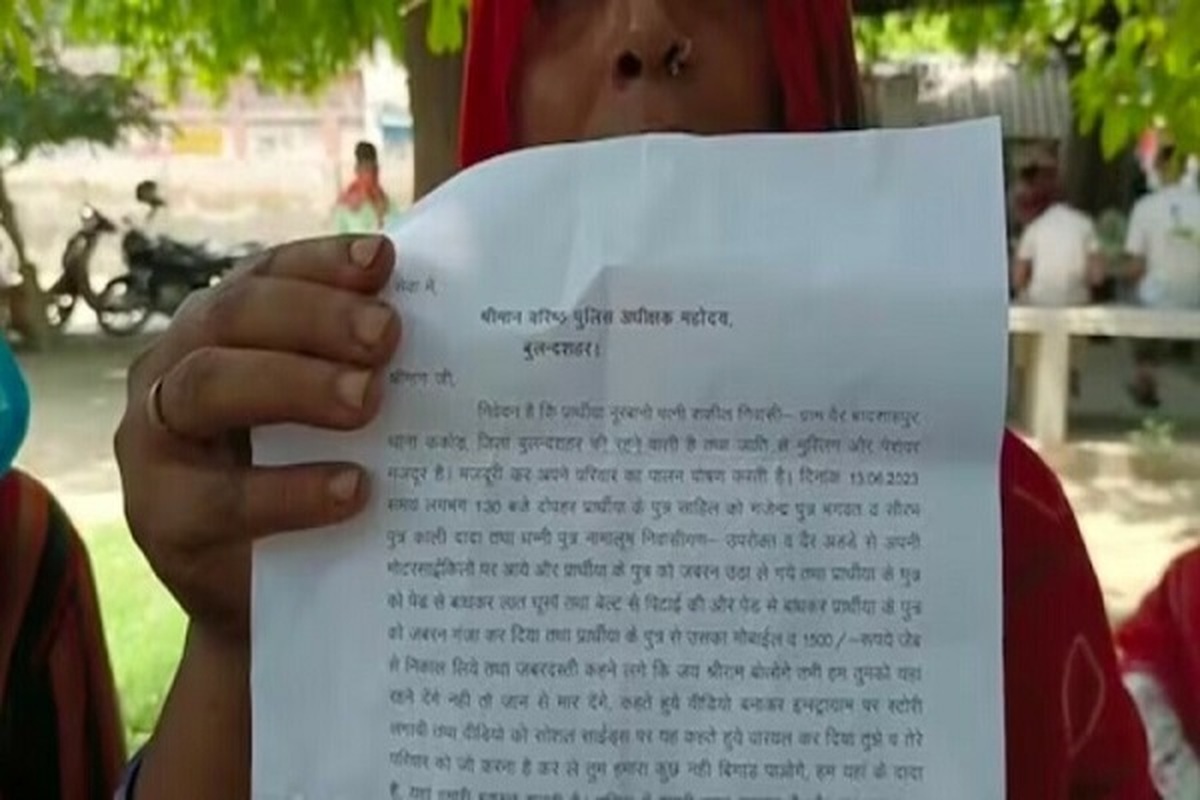 सेवा में,
श्रीमान वरिष्ठ पुलिस अधीक्षक महोदय,
बुलन्दशहर।
श्रीमान जी,
निवेदन है कि प्रार्थीया नूरबानो पत्नी शकील निवासी– ग्राम वैर बादशाहपुर
थाना ककोड़, जिला बुलन्दशहर की रहने वाली है तथा जाति से मुस्लिम और पेशेवर
मजदूर है। मजदूरी कर अपने परिवार का पालन पोषण करती है। दिनांक 13.06.2023
समय लगभग 1:30 बजे दोपहर प्रार्थीया के पुत्र साहिल को गजेन्द्र पुत्र भगवत व सौरभ
पुत्र काली दादा तथा धन्नी पुत्र नामालूम निवासीगण– उपरोक्त व वैर अड्डे से अपनी
मोटरसाईकिलो पर आये और प्रार्थीया के पुत्र को जबरन उठा ले गये तथा प्रार्थीया के पुत्र
को पेड से बांधकर लात घूसों तथा बेल्ट से पिटाई की और पेड से बांधकर प्रार्थीया के पुत्र
को जबरन गंजा कर दिया तथा प्रार्थीया के पुत्र से उसका मोबाईल व 1500/–रूपये जेब
से निकाल लिये तथा जबरदस्ती कहने लगे कि जय श्रीराम बोलोगे तभी हम तुमको यहा
रहने देंगे नही तो जान से मार देंगे, कहते हुये वीडियो बनाकर इन्स्ट्राग्राम पर स्टोरी
लगायी तथा वीडियो को सोशल साईड्स पर यह कहते हुये वायरल कर दिया तुझे व तेरे
परिवार को जो करना है कर ले तुम हमारा कुछ नही बिगाड पाओगे, हम यहां के दादा
है, यहां हमारी